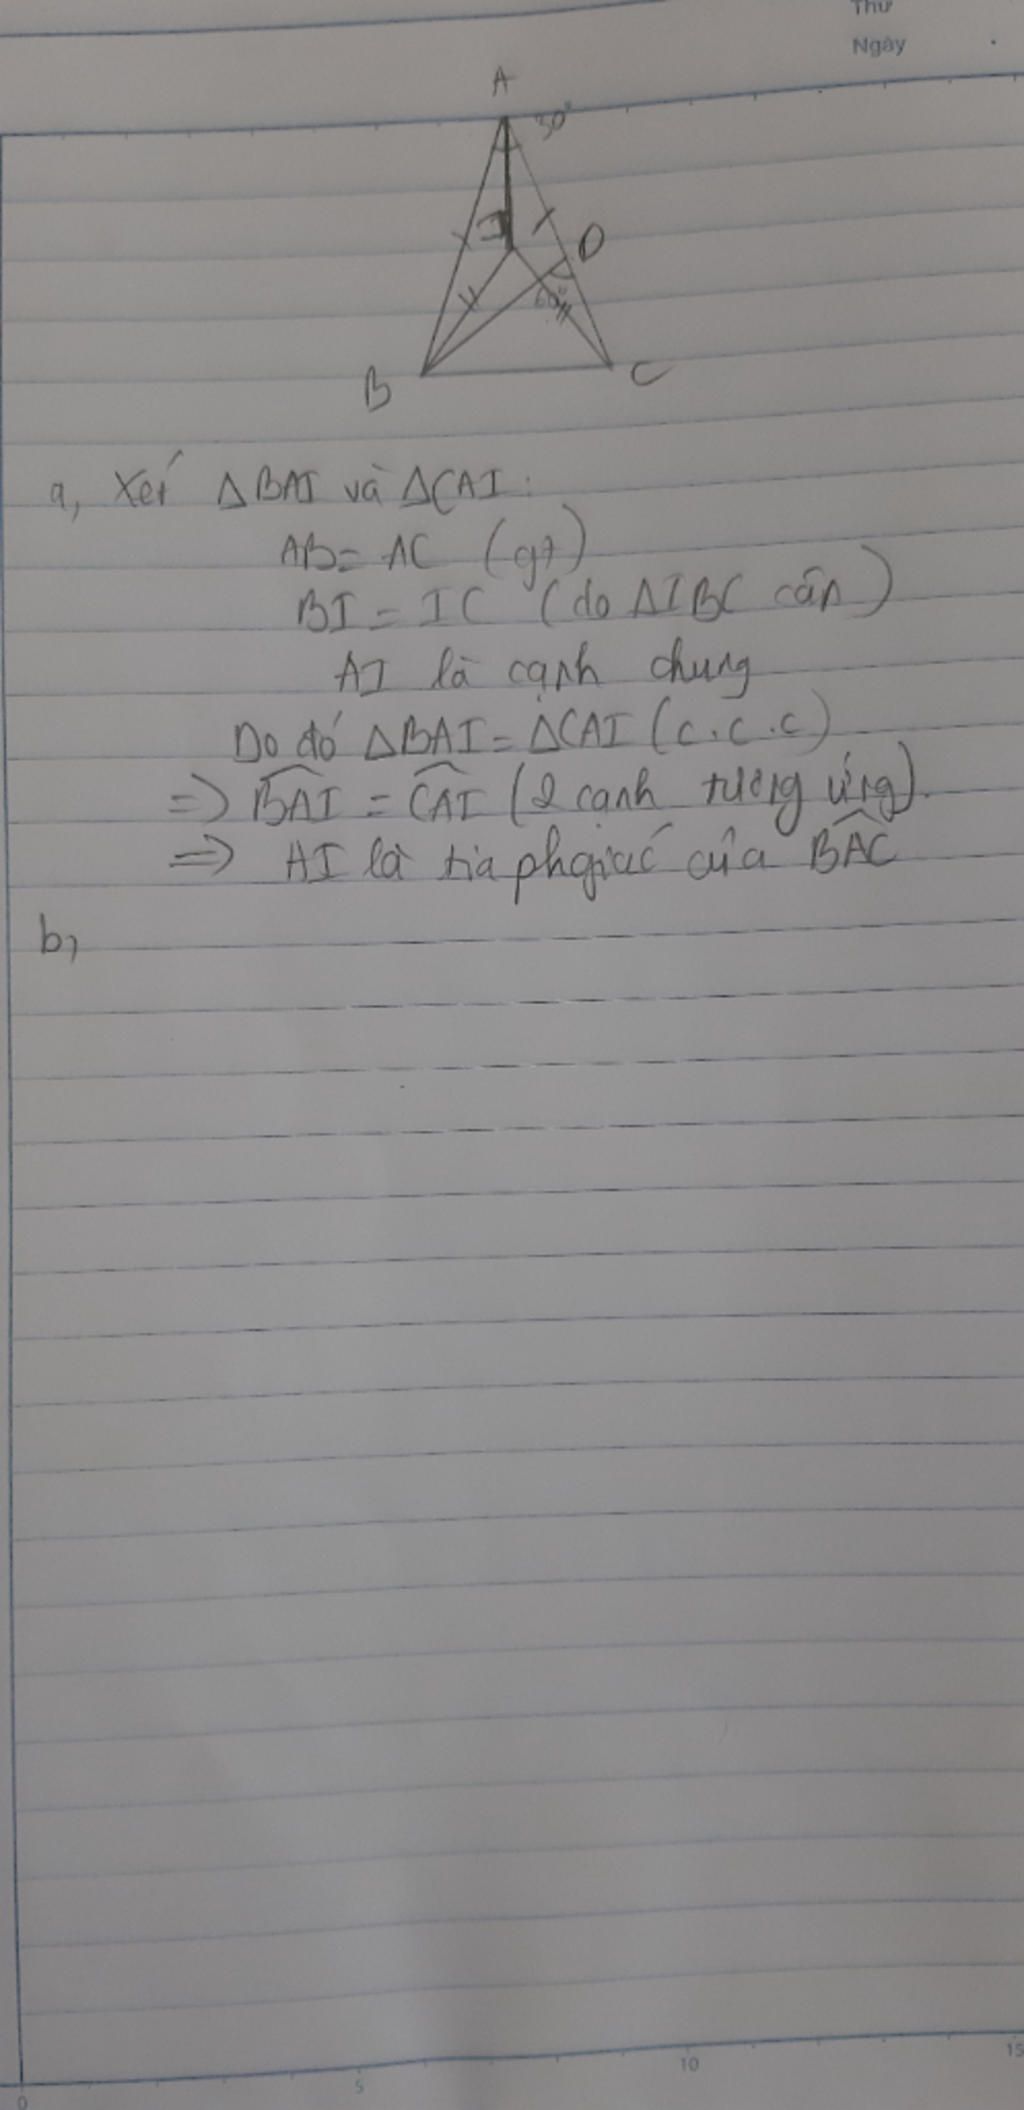 Thứ
Ngày
A
30°
I
D
60°
B
C
a, Xét ΔBAI và ΔCAI:
AB = AC (gt)
BI = IC (do ΔIBC cân)
AI là cạnh chung
Do đó ΔBAI = ΔCAI (c.c.c)
=> BAI = CAI (2 cạnh tương ứng).
=> AI là tia phgiác của BAC
b,
0 5 10 15